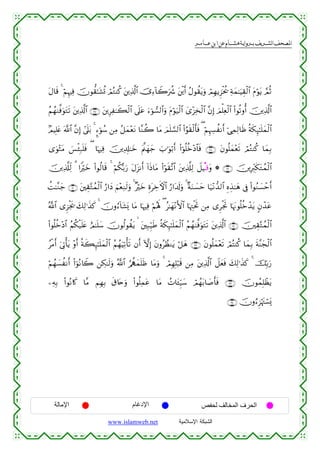 المصحف الشريف برواية هشام عن ابن عامر
ثُمَّ يَوْمَ الْقِيَامَةِ يُخْزِيهِمْ وَيَقُولُ أَيْنَ شُرَكَاءِيَ الَّذِينَ كُنتُمْ تُشَاقُّونَ فِيهِمْ قَالَ
الَّذِينَ أُوتُوا الْعِلْمَ إِنَّ الْخِزْيَ الْيَوْمَ وَالسُّوءَ عَلَى الْكَافِرِينَ الَّذِينَ تَتَوَفَّاهُمُ
الْمَلَائِكَةُ ظَالِمِي أَنفُسِهِمْ فَأَلْقَوُا السَّلَمَ مَا كُنَّا نَعْمَلُ مِن سُوءٍ بَلَى إِنَّ اللَّهَ عَلِيمٌ
بِمَا كُنتُمْ تَعْمَلُونَ فَادْخُلُوا أَبْوَابَ جَهَنَّمَ خَالِدِينَ فِيهَا فَلَبِئْسَ مَثْوَى
الْمُتَكَبِّرِينَ وَقِيلَ لِلَّذِينَ اتَّقَوْا مَاذَا أَنزَلَ رَبُّكُمْ قَالُوا خَيْرًا لِّلَّذِينَ
أَحْسَنُوا فِي هَذِهِ الدُّنْيَا حَسَنَةٌ وَلَدَارُ الْآخِرَةِ خَيْرٌ وَلَنِعْمَ دَارُ الْمُتَّقِينَ جَنَّاتُ
عَدْنٍ يَدْخُلُونَهَا تَجْرِي مِن تَحْتِهَا الْأَنْهَارُ لَهُمْ فِيهَا مَا يَشَاءُونَ كَذَلِكَ يَجْزِي اللَّهُ
الْمُتَّقِينَ الَّذِينَ تَتَوَفَّاهُمُ الْمَلَائِكَةُ طَيِّبِينَ يَقُولُونَ سَلَامٌ عَلَيْكُمُ ادْخُلُوا
الْجَنَّةَ بِمَا كُنتُمْ تَعْمَلُونَ هَلْ يَنظُرُونَ إِلَّا أَن تَأْتِيَهُمُ الْمَلَائِكَةُ أَوْ يَأْتِيَ أَمْرُ
رَبِّكَ كَذَلِكَ فَعَلَ الَّذِينَ مِن قَبْلِهِمْ وَمَا ظَلَمَهُمُ اللَّهُ وَلَكِن كَانُوا أَنفُسَهُمْ
يَظْلِمُونَ فَأَصَابَهُمْ سَيِّئَاتُ مَا عَمِلُوا وَحَاقَ بِهِم مَّا كَانُوا بِهِ
يَسْتَهْزِءُونَ
الحرف المخالف لحفص الإدغام الإمالة
الشبكة الإسلامية www.islamweb.net